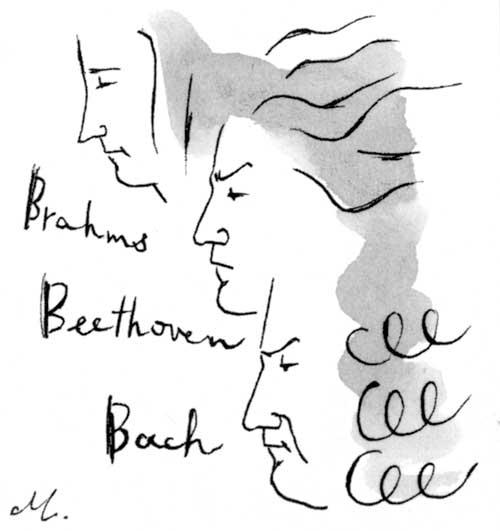 Brahms
Beethoven
Bach
M.